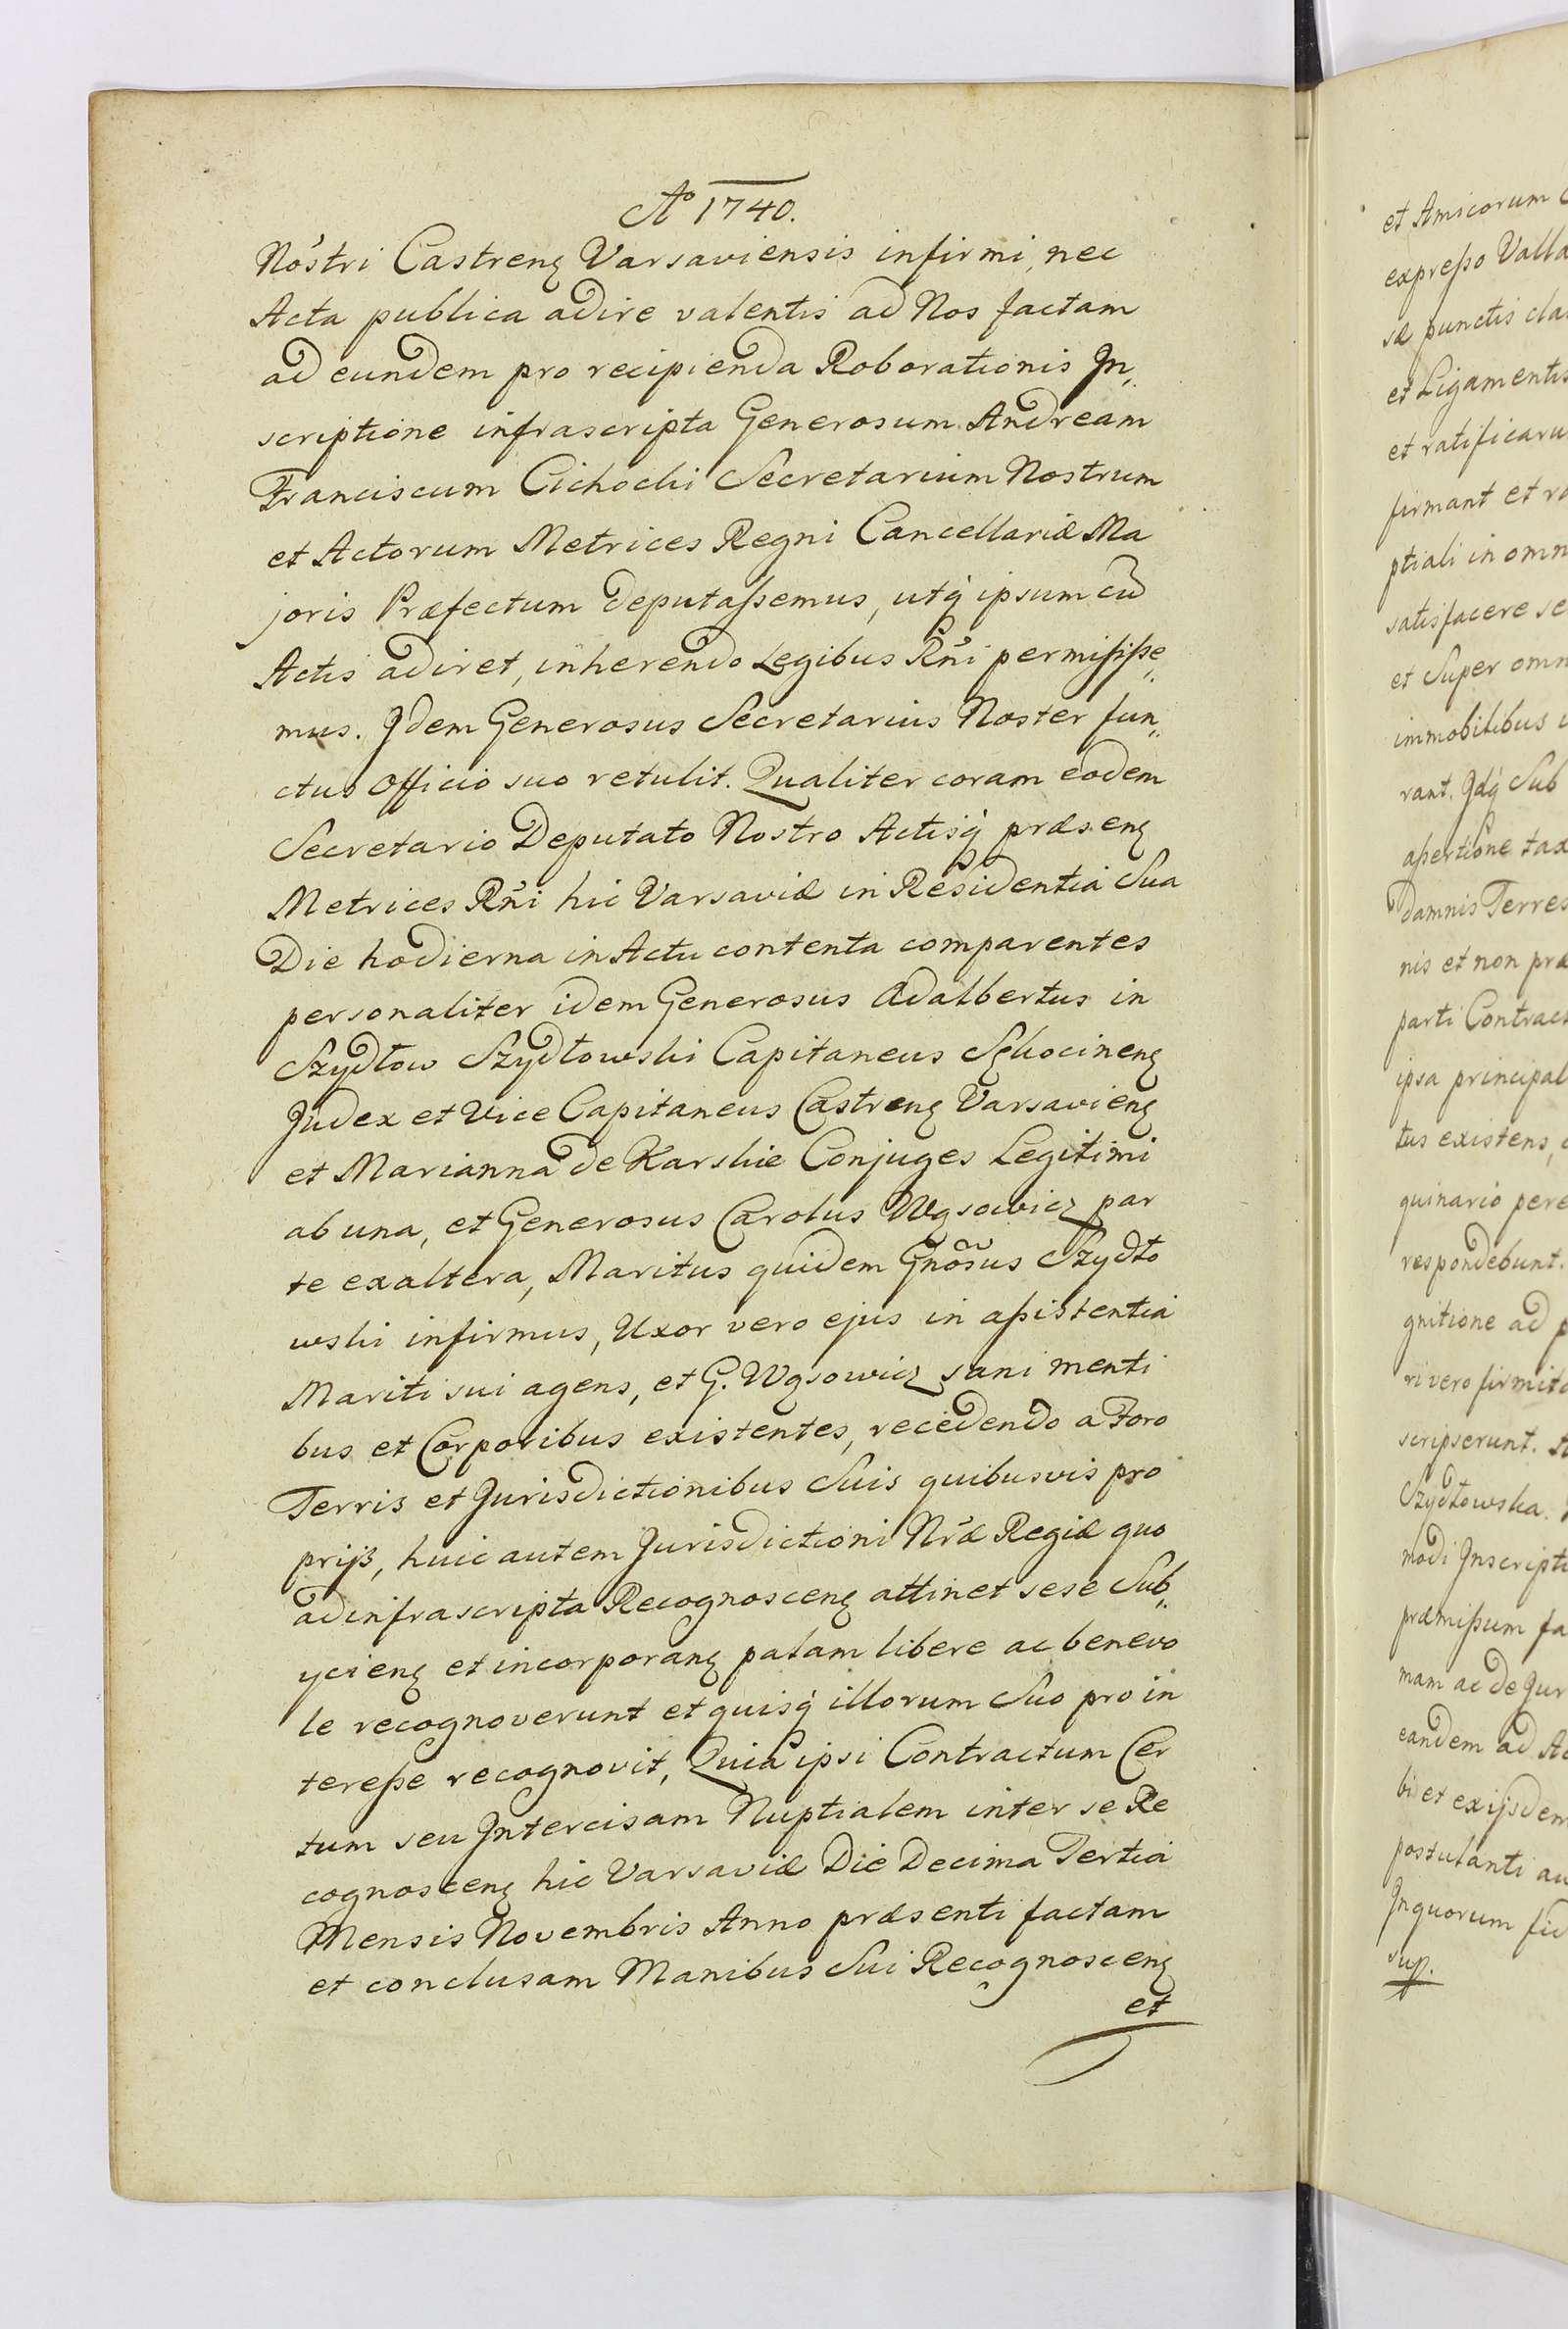 Aº 1740.
Nostri Castrenȩ Varsaviensis infirmi, nec
Acta publica adire valentis ad Nos factam
ad eundem pro recipienda Roborationis In„
scriptione infrascripta Generosum Andream
Franciscum Cichocki Secretarium Nostrum
et Actorum Metrices Regni Cancellariæ Ma
joris Præfectum deputaſsemus, utq́ ipsum cũ
Actis adiret, inherendo Legibus Rñi permiſiſse„
mus. Idem Generosus Secretarius Noster fun„
ctus Officio suo retulit. Qualiter coram eodem
Secretario Deputato Nostro Actisq́ præsenȩ
Metrices Rñi hic Varsaviæ in Residentia Sua
Die hodierna in Actu contenta comparentes
personaliter idem Generosus Adalbertus in
Szydłow Szydłowski Capitaneus Mscicinenȩ
Judex et Vice Capitaneus Castrenȩ Varsavienȩ
et Marianna de Karskie Conjuges Legitimi
ab una, et Generosus Carolus Wąsowicz par
te ex altera, Maritus quidem Gñosus Szydło
wski infirmus, Uxor vero ejus in aſsistentia
Mariti sui agens, et G. Wąsowicz sani menti
bus et Corporibus existentes, recedendo a Foro
Terris et Jurisdictionibus Suis quibusvis pro
prijs, huic autem Jurisdictioni Nr̃æ Regiæ quo
ad infrascripta Recognoscenȩ attinet sese Sub„
ycienȩ et incorporanȩ palam libere ac benevo
le recognoverunt et quisq́ illorum Suo pro in
tereſse recognovit, Quia ipsi Contractum Cer
tum seu Intercisam Nuptialem inter se Re
cognoscenȩ hic Varsaviæ Die Decima Tertia
Mensis Novembris Anno præsenti factam
et conclusam Manibus Sui Recognoscenȩ
et
et Amicorum
expreſso Valla
sæ punctis cla
et Ligamentis
et ratificaru
firmant et ra
ptiali in omn
satisfacere se
et Super omn
immobilibus
rant. Idq́ Sub
aſsertione tax
damnis Terres
nis et non præ
parti Contract
ipsa principal
tus existens,
quinario pere
respondebunt.
gnitione ad p
ri vero firmita
scripserunt.
Szydłowska.
modi Inscripti
præmiſsum fa
mam ac de Jur
eandem ad Ac
bi et ex ijsdem
postulanti au
Inquorum fid
sup.